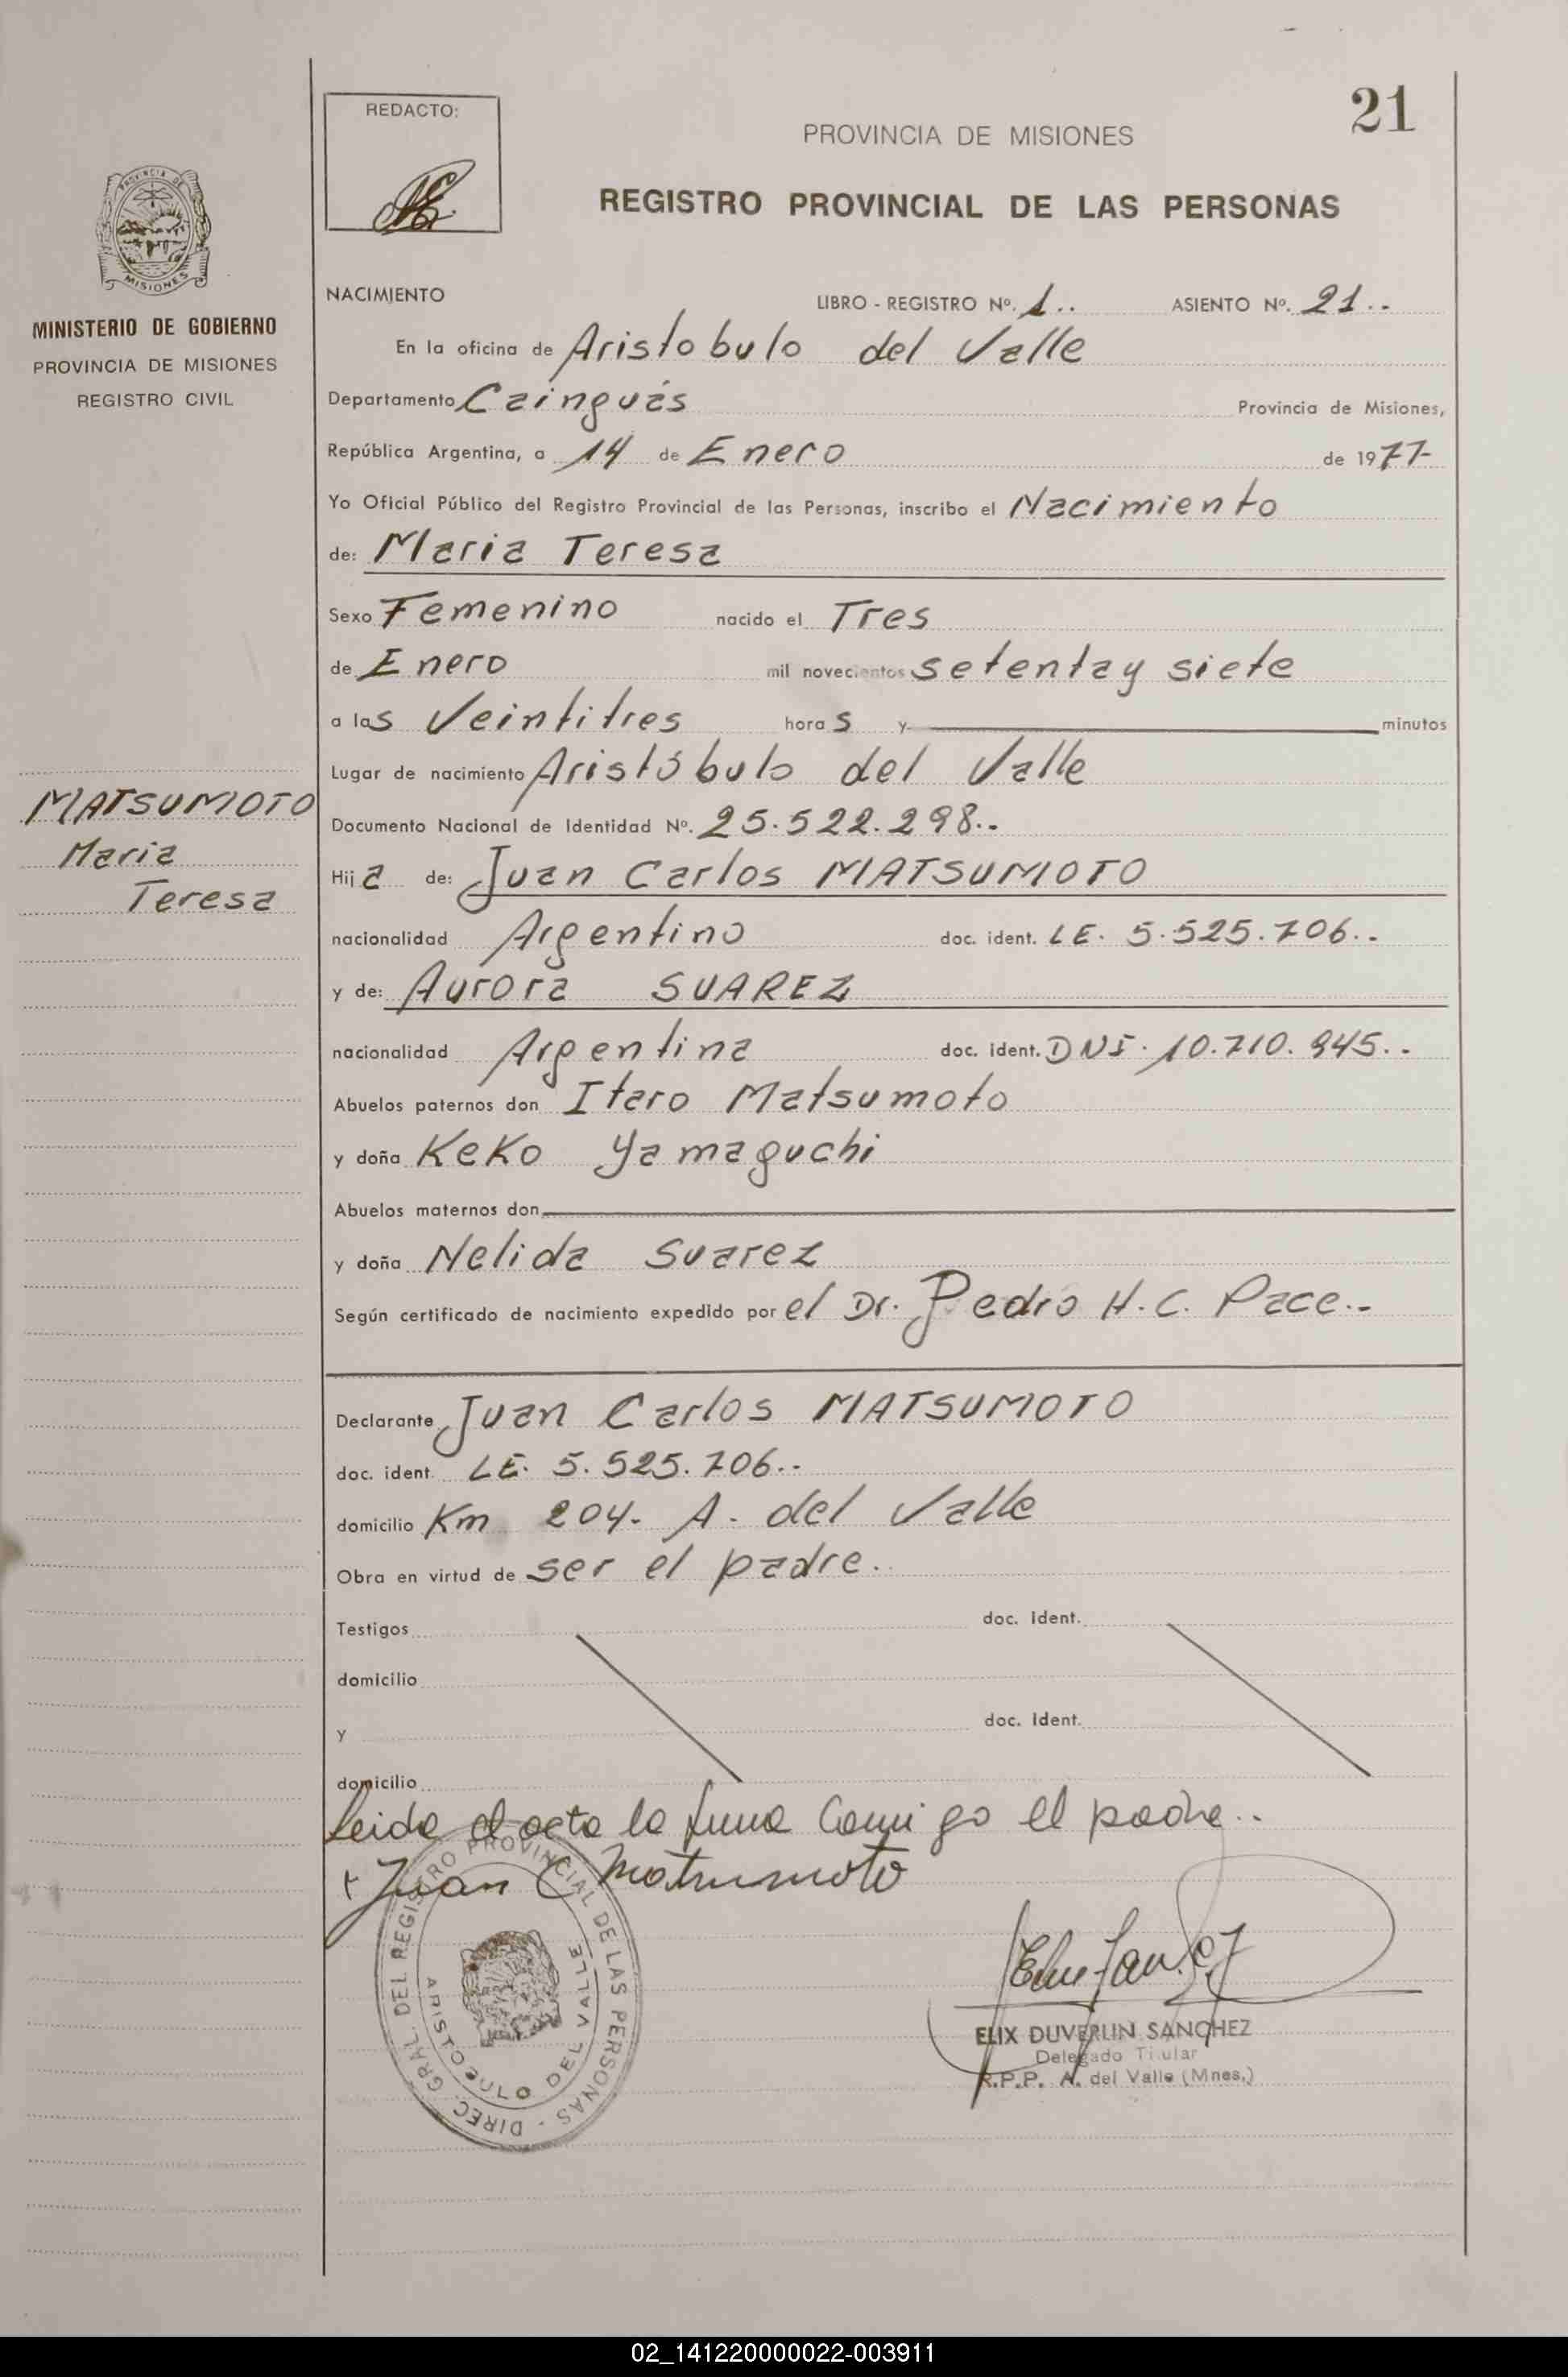 REDACTO:
21
PROVINCIA DE MISIONES
REGISTRO PROVINCIAL DE LAS PERSONAS
PROVINCIA DE
MISIONES
MINISTERIO DE GOBIERNO
PROVINCIA DE MISIONES
REGISTRO CIVIL
NACIMIENTO LIBRO - REGISTRO Nº. 1.. ASIENTO Nº. 21..
En la oficina de Aristobulo del Valle
Departamento Cainguás Provincia de Misiones,
República Argentina, a 14 de Enero de 1977-
Yo Oficial Público del Registro Provincial de las Personas, inscribo el Nacimiento
de: Maria Teresa
Sexo Femenino nacido el Tres
de Enero mil novecientos setenta y siete
a las Veintitres horas y minutos
Lugar de nacimiento Aristóbulo del Valle
MATSUMOTO
Maria
Teresa
Documento Nacional de Identidad Nº. 25.522.298..
Hija de: Juan Carlos MATSUMOTO
nacionalidad Argentino doc. ident. LE. 5.525.706..
y de: Aurora SUAREZ
nacionalidad Argentina doc. ident. DNI. 10.710.945..
Abuelos paternos don Itaro Matsumoto
y doña Keko Yamaguchi
Abuelos maternos don
y doña Nelida Suarez
Según certificado de nacimiento expedido por el Dr. Pedro H.C. Pace..
Declarante Juan Carlos MATSUMOTO
doc. ident. LE. 5.525.706..
domicilio Km 204. A. del Valle
Obra en virtud de ser el padre.
Testigos doc. ident.
domicilio
y doc. ident.
domicilio
Leida el acta la firma Comigo el padre..
Juan C Matsumoto
DIREC. GRAL. DEL REGISTRO PROVINCIAL DE LAS PERSONAS -
ARISTOBULO DEL VALLE
ELIX DUVERLIN SANCHEZ
Delegado Titular
R.P.P. A. del Valle (Mnes.)
02_141220000022-003911